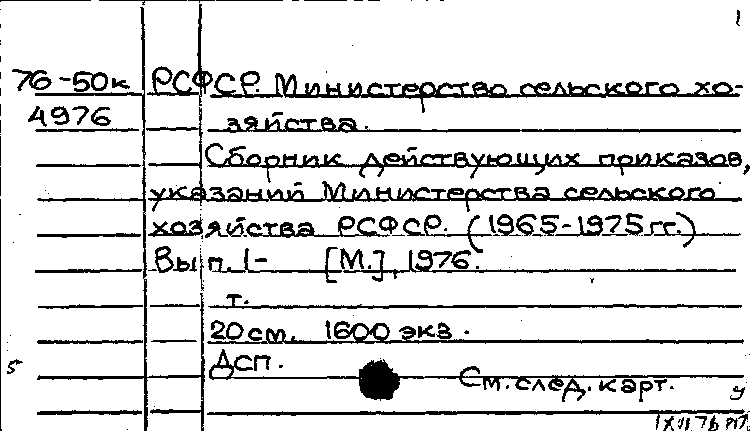 1
76-50к РСФСР. Министерство сельского хо-
4976 зяйства.
Сборник действующих приказов,
указаний Министерства сельского
хозяйства РСФСР. (1965-1975 гг.)
Вып. 1- [М.], 1976.
т.
20 см. 1600 экз.
ДСП.
5 См. след. карт.